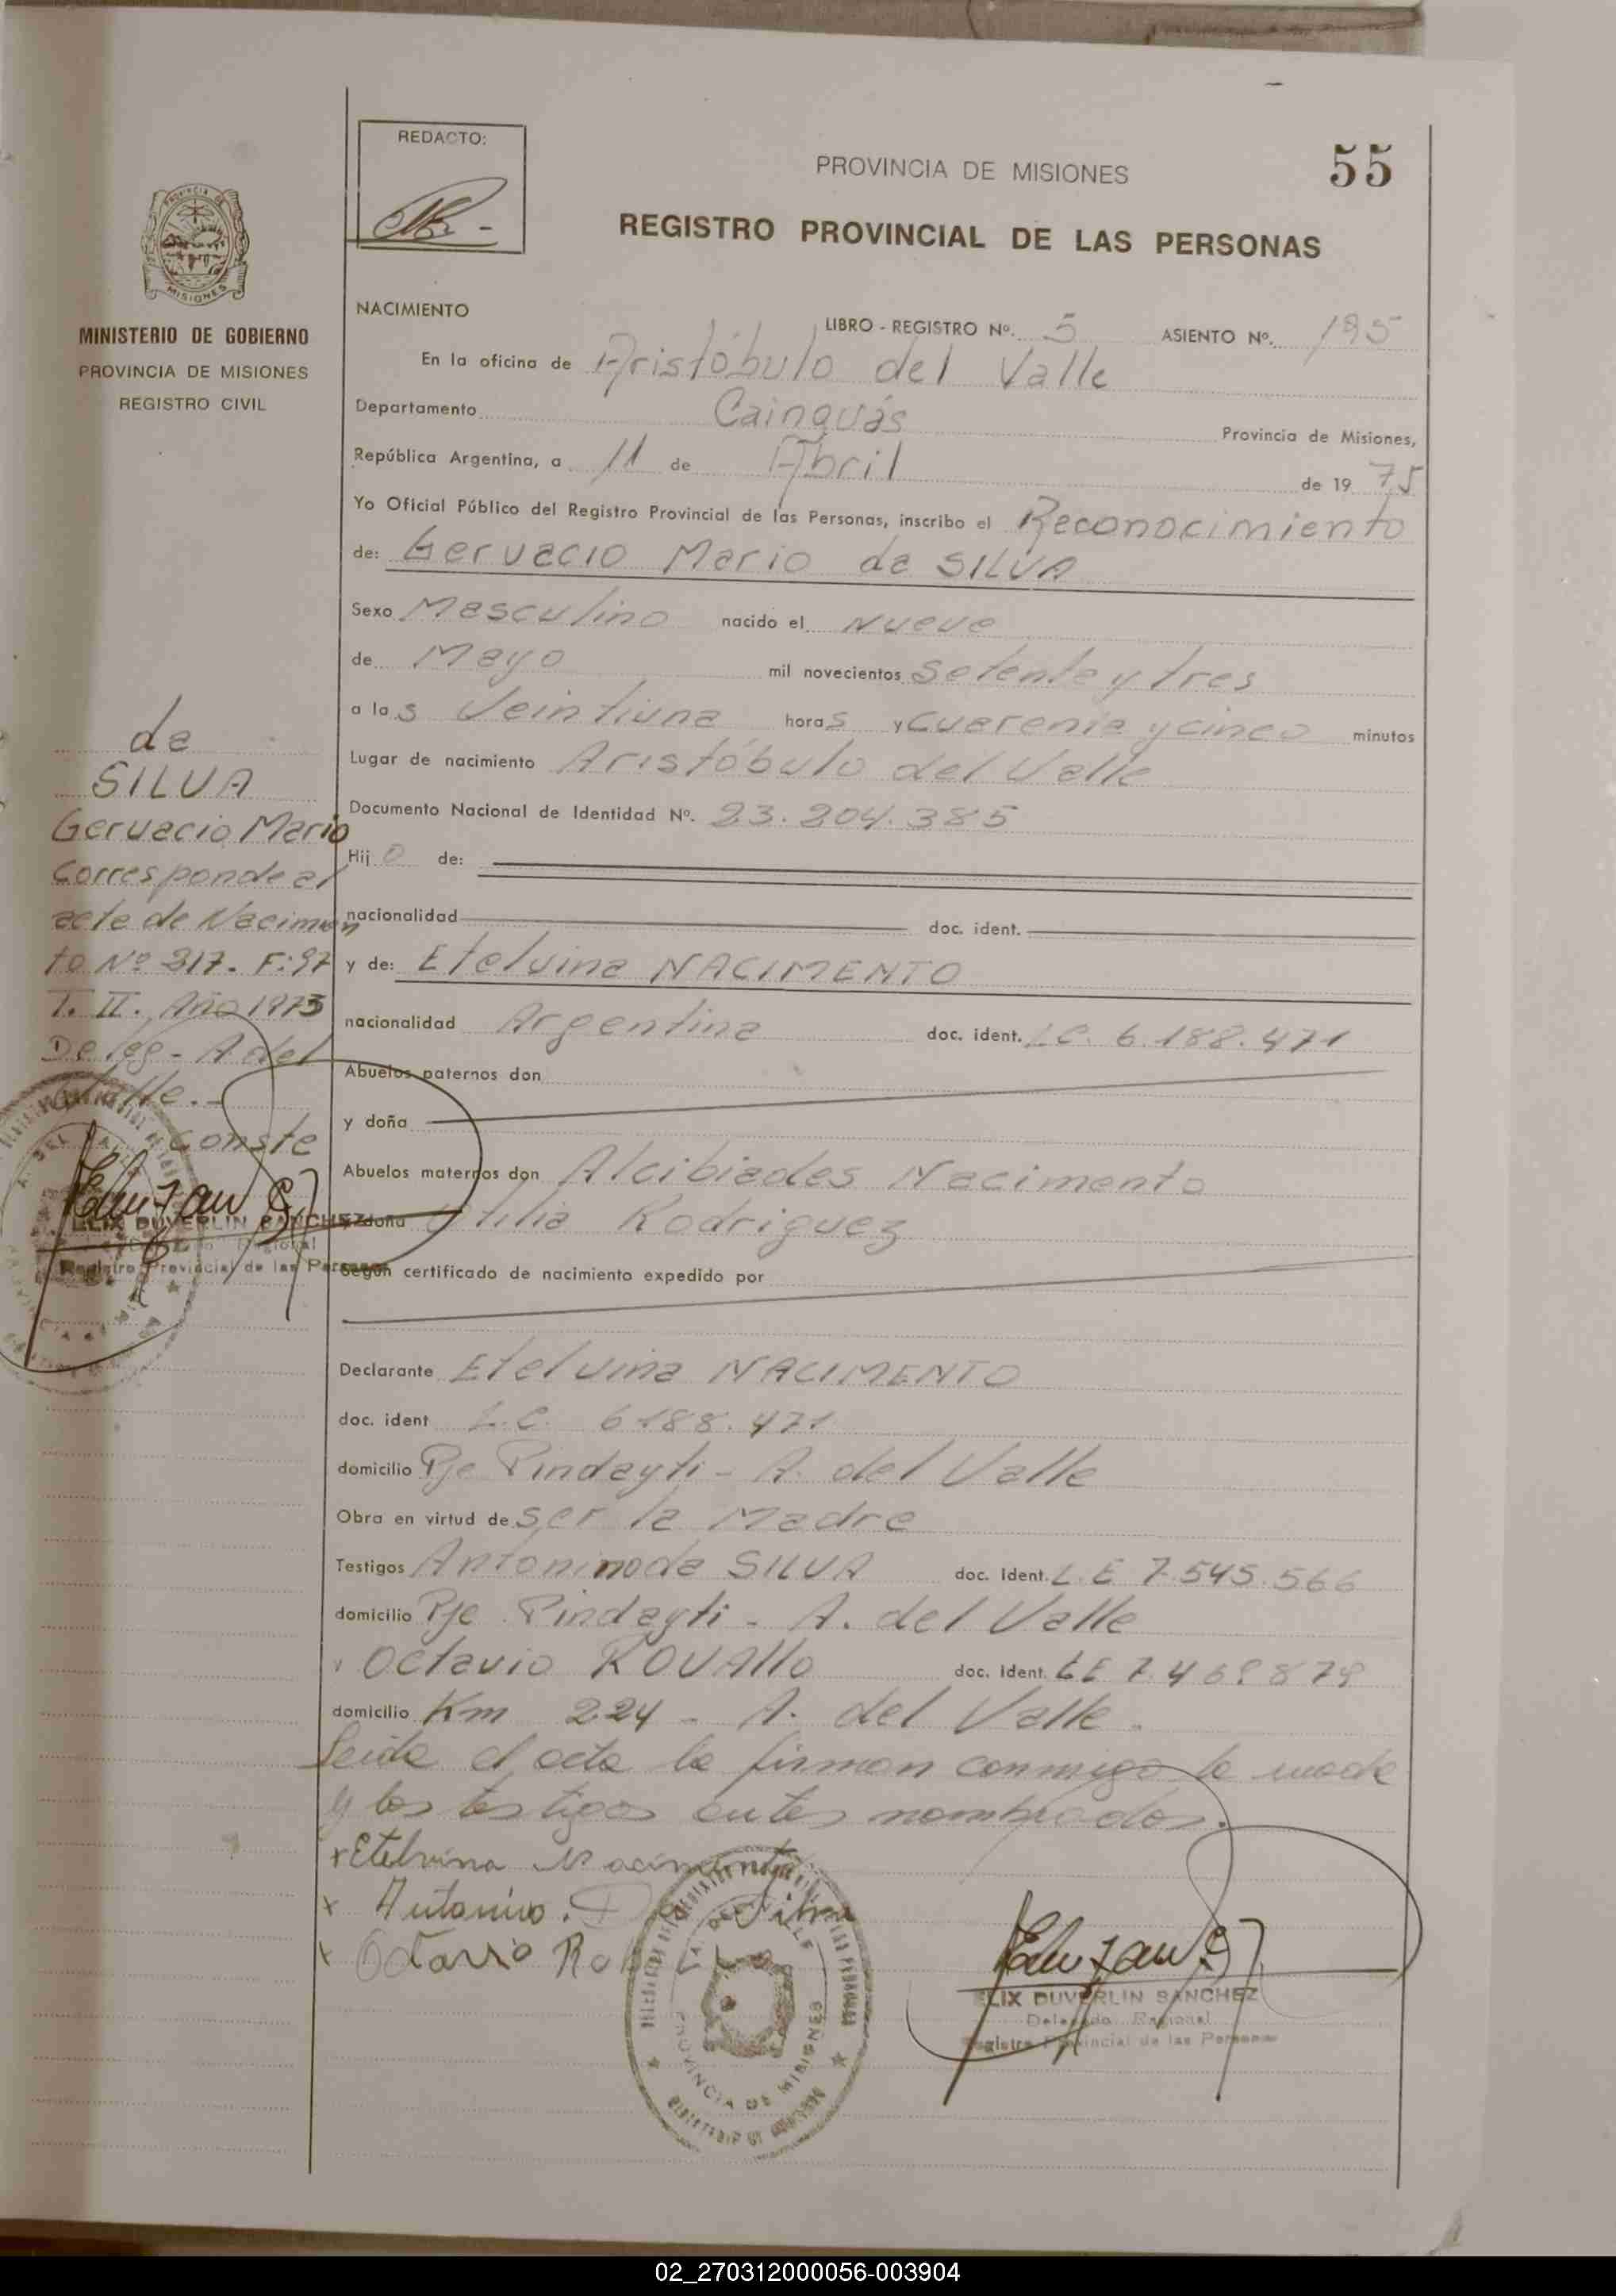 REDACTO:
PROVINCIA DE MISIONES
55
REGISTRO PROVINCIAL DE LAS PERSONAS
PROVINCIA DE
MISIONES
MINISTERIO DE GOBIERNO
PROVINCIA DE MISIONES
REGISTRO CIVIL
NACIMIENTO
LIBRO - REGISTRO Nº. 5 ASIENTO Nº. 195
En la oficina de Aristóbulo del Valle
Departamento Cainguás Provincia de Misiones,
República Argentina, a 11 de Abril de 1975
Yo Oficial Público del Registro Provincial de las Personas, inscribo el Reconocimiento
de: Gervacio Mario da SILVA
Sexo Masculino nacido el Nueve
de Mayo mil novecientos Setenta y tres
a las Veintiuna horas y Cuarenta y cinco minutos
Lugar de nacimiento Aristóbulo del Valle
Documento Nacional de Identidad Nº. 23.204.385
Hijo de:
nacionalidad doc. ident.
y de: Etelvina NACIMENTO
nacionalidad Argentina doc. ident. LC. 6.188.471
Abuelos paternos don
y doña
Abuelos maternos don Alcibiades Nacimento
doña Otilia Rodriguez
Según certificado de nacimiento expedido por
Declarante Etelvina NACIMENTO
doc. ident L.C. 6188.471
domicilio Pje Pindayti - A. del Valle
Obra en virtud de ser la Madre
Testigos Antonino da SILVA doc. Ident. L.E 7.545.566
domicilio Pje Pindayti - A. del Valle
y Octavio ROVALLO doc. Ident. LE 7.469.879
domicilio Km 224 - A. del Valle.
Leida el acta la firman conmigo la madre
y los testigos antes nombrados.
x Etelvina Nacimento
x Antonino. Da Silva
x Octavio
da
SILVA
Gervacio Mario
Corresponde al
acta de Nacimien
to Nº 317. F:97
T. II. Año 1973
Deleg- A del
Valle.-
Conste
ELIX DUVERLIN SANCHEZ
Delegado Regional
Registro Provincial de las Personas
PROVINCIA DE MISIONES
ELIX DUVERLIN SANCHEZ
Delegado Regional
Registro Provincial de las Personas
02_270312000056-003904